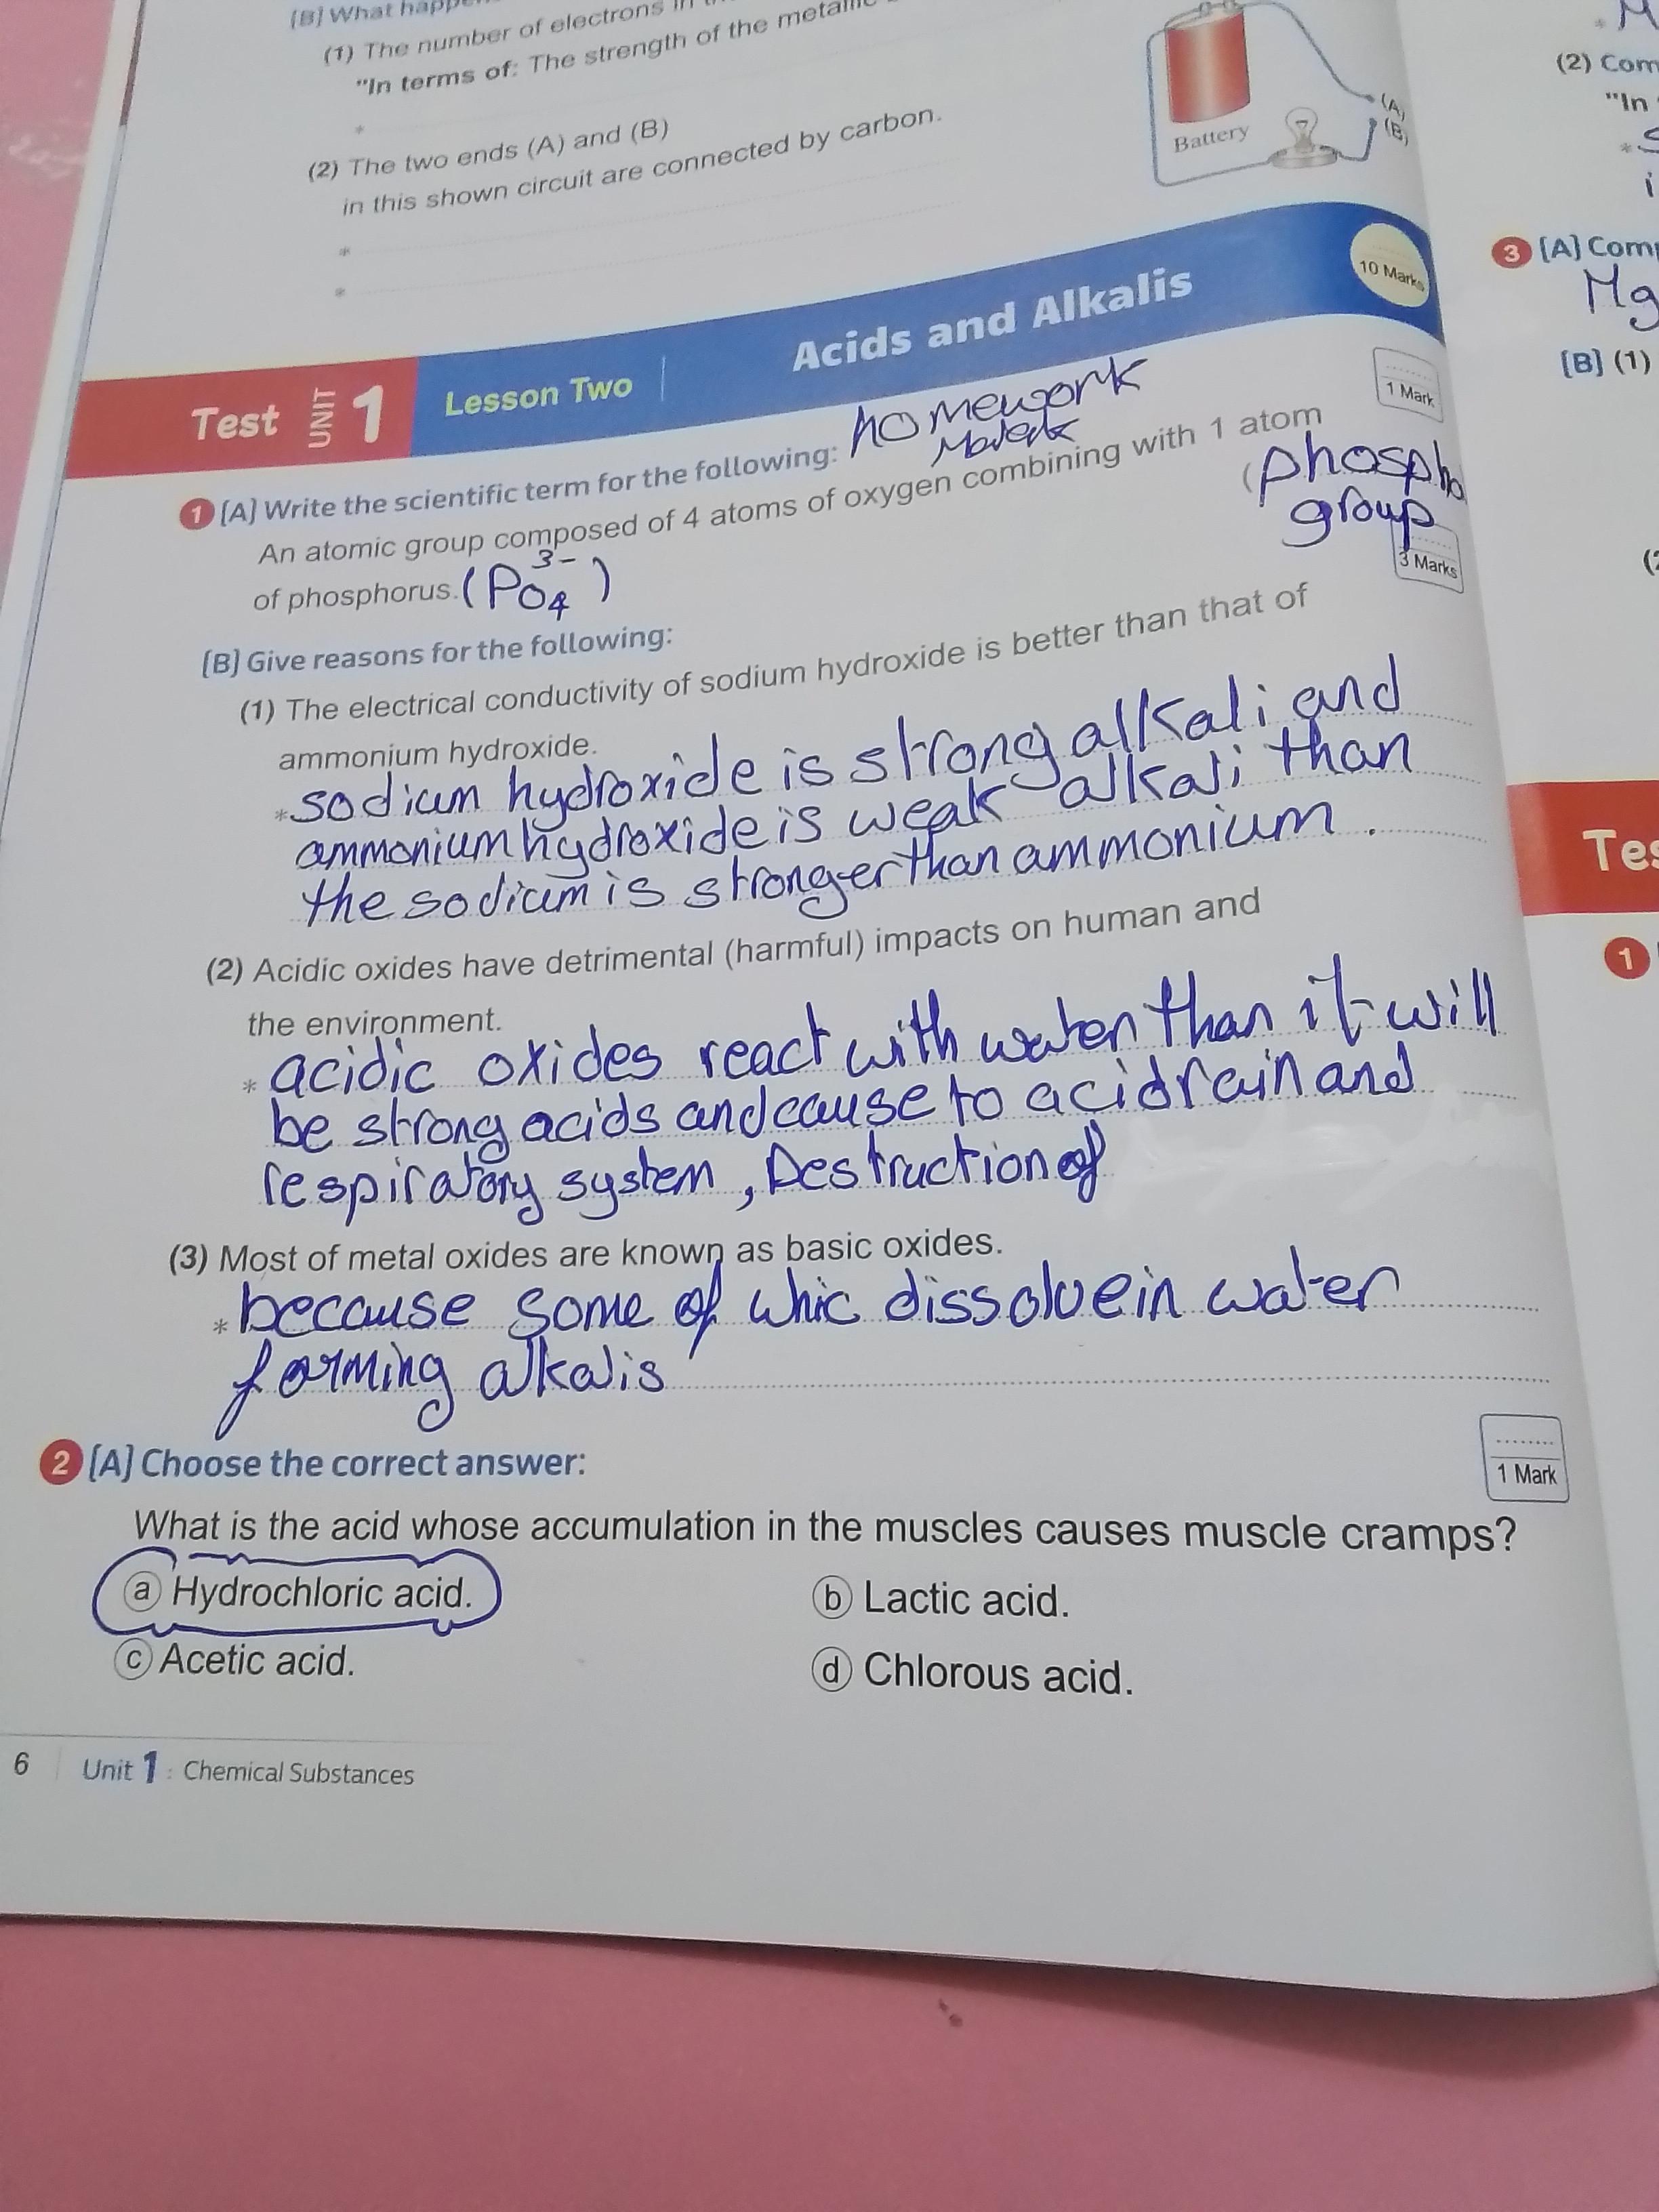 [B] What
(1) The number of electrons in
"In terms of: The strength of the metallic
*
(2) The two ends (A) and (B)
in this shown circuit are connected by carbon.
*
*
Battery
(A)
(B)
Test UNIT 1 Lesson Two Acids and Alkalis
10 Marks
homework
1 Mark
1 [A] Write the scientific term for the following:
An atomic group composed of 4 atoms of oxygen combining with 1 atom
of phosphorus. (PO4 3-)
(phospho
group
3 Marks
[B] Give reasons for the following:
(1) The electrical conductivity of sodium hydroxide is better than that of
ammonium hydroxide.
*sodium hydroxide is strong alkali and
ammonium hydroxide is weak alkali than
the sodium is stronger than ammonium.
(2) Acidic oxides have detrimental (harmful) impacts on human and
the environment.
* acidic oxides react with water than it will
be strong acids and cause to acid rain and
respiratory system, Destruction of
(3) Most of metal oxides are known as basic oxides.
* because some of whic dissolve in water
forming alkalis
2 [A] Choose the correct answer:
1 Mark
What is the acid whose accumulation in the muscles causes muscle cramps?
a Hydrochloric acid.
b Lactic acid.
c Acetic acid.
d Chlorous acid.
6 Unit 1 : Chemical Substances
(2) Com
"In
*
3 [A] Com
Mg
[B] (1)
Tes
1